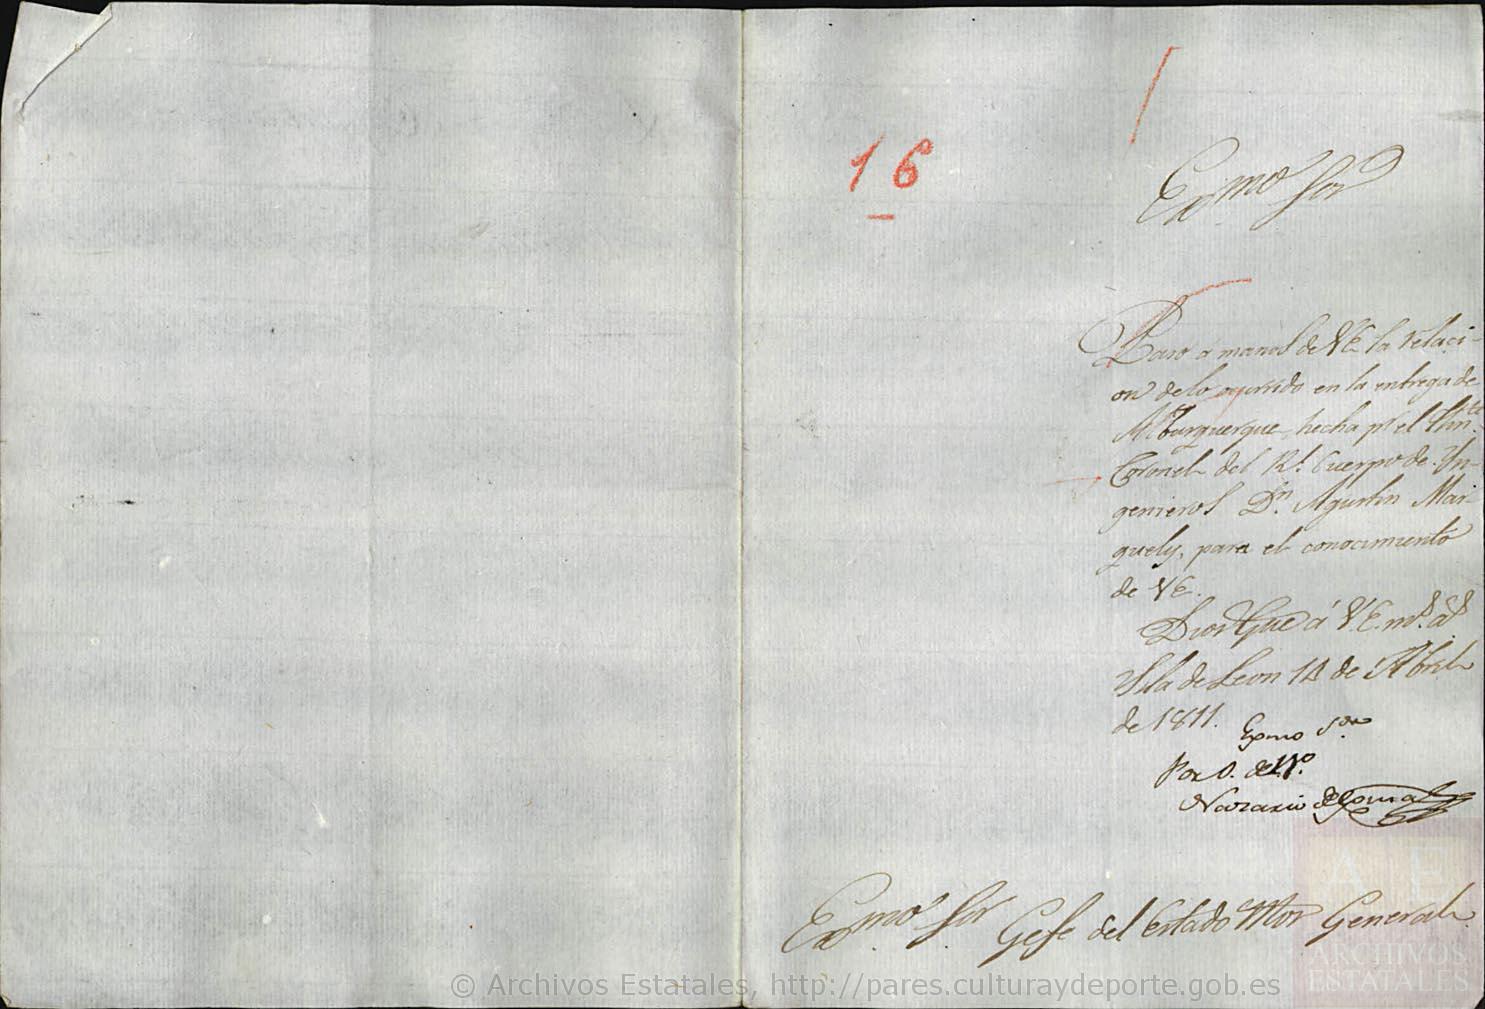 16
Exmo Sor
Paso á manos de VE la relaci-
on de lo ocurrido en la entrega de
Alburquerque, hecha pr. el Thnte.
Coronel del Rl. Cuerpo de Yn-
genieros Dn. Agustin Mar-
quely, para el conocimiento
de VE.
Dios Gue á V.E. ms. as.
Ysla de Leon 14 de Abril
de 1811.
Exmo Sor.
Por O. del
Nazario de
Exmo. Sor Gefe del Estado Mor General.
© Archivos Estatales, http://pares.culturaydeporte.gob.es
A E
ARCHIVOS
ESTATALES